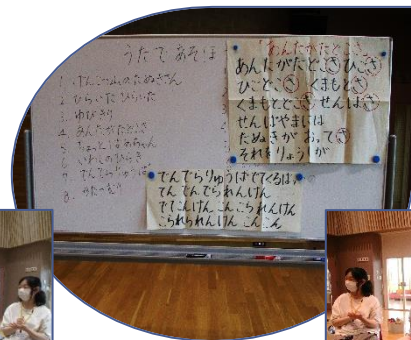 うたであそぼ
1. げんこつ山のたぬきさん
2. ひらいたひらいた
3. ゆびきり
4. あんたがたどこさ
5. ちょっとばあちゃん
6. いわしのひらき
7. でんでらりゅうば
8.
あんたがたどこさ
あんたがたどこさ ひごさ
ひごどこさ くまもとさ
くまもとどこさ せんばさ
せんばやまには
たぬきが おってさ
それをりょうしが
でんでらりゅうばでてくるば、
でんでられんけん
でてこんけん こんこられんけん
こられられんけん こんこん